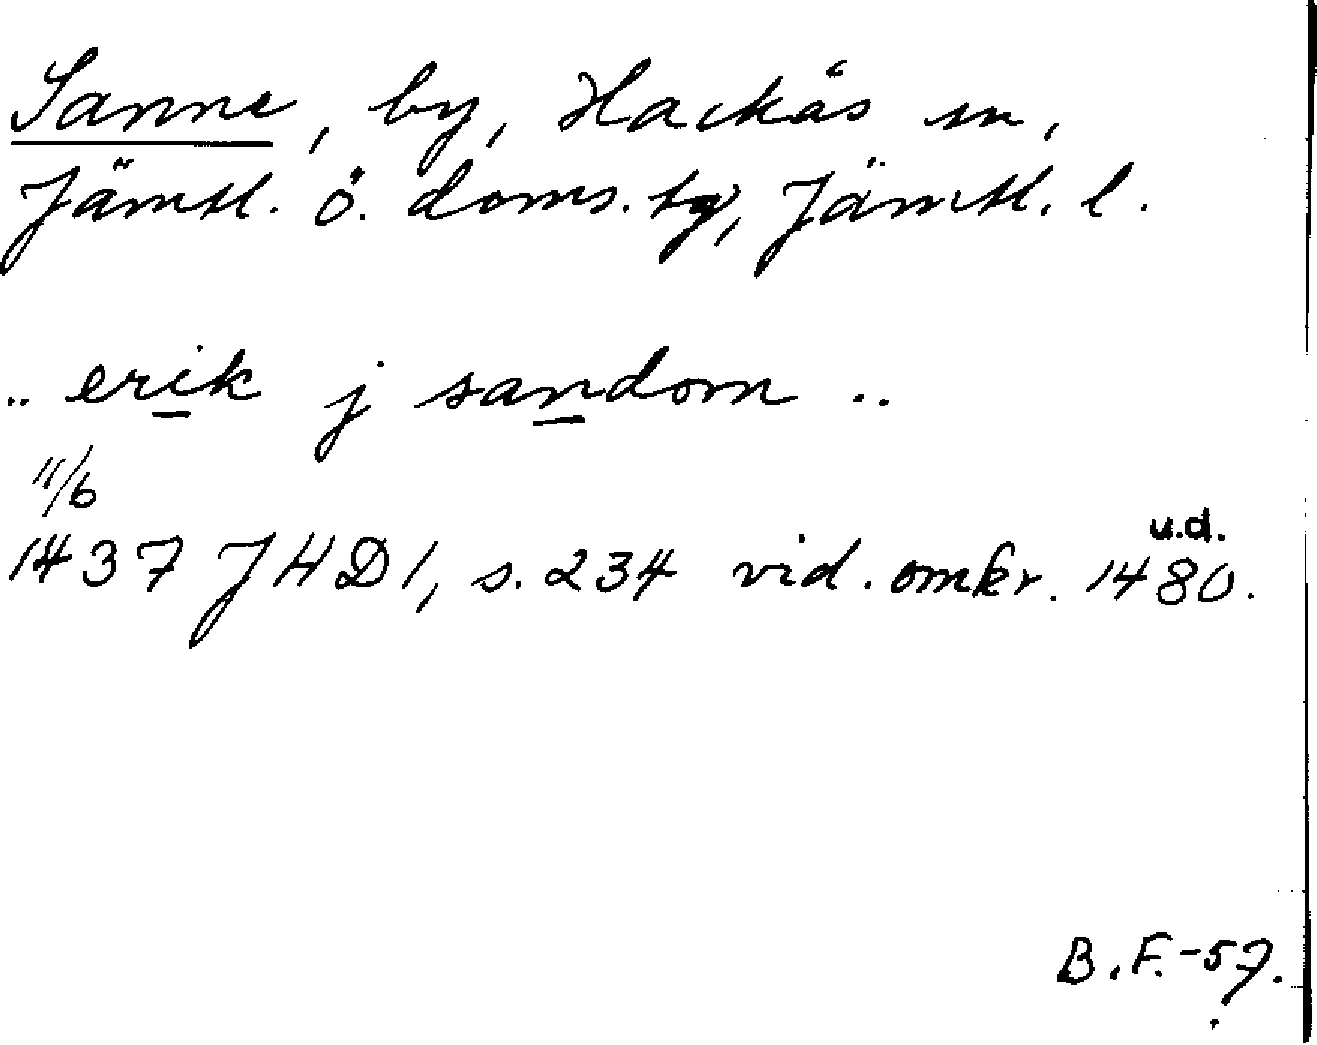 Sanne, by, Hackås sn,
Jämtl. ö. doms. tg, Jämtl. l.
.. erik j sandom ..
11/6
1437 JHD 1, s. 234 vid. omkr. 1480. u.d.
B.F.-57.